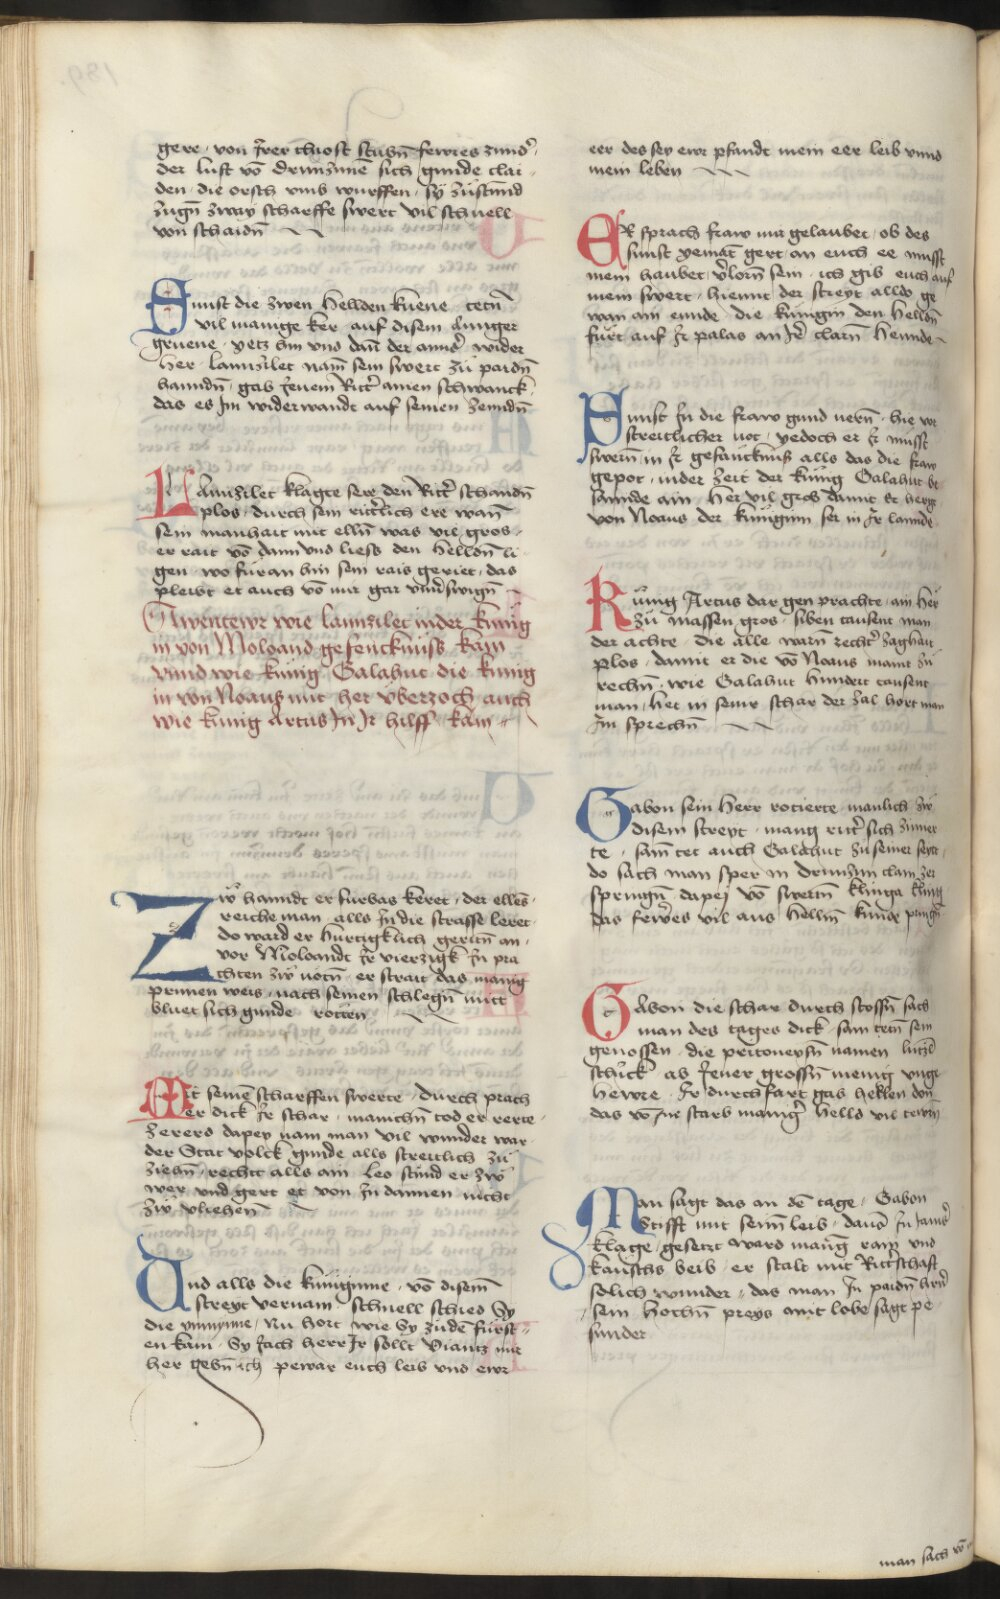 gere · von Irer thiost stubn̄ fewres zundͦ ·
der lufft vō drunzunē sich gunde clai ·
den · die orsch vmb wurffen · sy zústund
zugn̄ zway scharffe swert vil schnell
von schaidn̄
Sunst die zwen hellden kuene · tetn̄
vil manige ker · auf disem anger
gruene · yetz hin vnd dan̄ der annd͛ wider
her · lannzilet nam̄ sein swert zú paidn̄
hanndn̄ gab Jenem Ritt͛ ainen schwanck ·
das es Im widerwandt auf seinen zenndn̄
Lannzilet klagte sere den Ritt͛ schanndn̄
plos · durch sein ritt͛lich ere wann̄
sein manhait mit elln̄ was vil gros ·
er rait vō dann vnd liess den helldn̄ li
gen · wo füran hin sein rais geriet · das
pleibt et auch vō mir gar vnu͛swign̄
Awentewr wie lannzilet inder künig
in von Moloand gefencknüss kam
vnnd wie künig Galahut die künig
in von Noaus mit her vberzoch auch
wie künig Artus In Ir hilff kam
Zw hanndt er fürbas keret · der ellēs ·
reiche man · alls In die strasse leret
do ward er hurtigklich geritn̄ an ·
vor Moloandt Ir vierzigk In pra
chten zw notn̄ · er strait das manig
prunnen weis · nach seinen schlegn̄ mitt
bluet sich gunde rotten
Mit seinē scharffen swerte · durch prach
er dick Ir schar · manichn̄ tod er rerte ·
herers dapey nam man vil wunder war ·
der Stat volck gunde alls streitlich zú
ziehn̄ · recht alls ain leo stúnd er zw
wer · vnd gert et von In dannen nicht
zw vliehen̄
Und alls die küniginne · vō disem̄
streyt vernam · schnell schied Sy
die ynnynne / Nu hort wie Sy zúdē fürst ·
en kam · Sy sach herr Ir sollt Viantz mir
her gebn̄ ich pewar euch leib vnd ewr
eer des sey ewr pfandt mein eer leib vnnd
mein leben
ER sprach fraw mir gelaubet · ob des
sunst yemāt gert · an euch ee muesst
mein haubet v͛lorn̄ sein · ich gib euch auf
mein swert · hiemit der streyt alldo ge
wan ain ennde · die künigin den helldn̄
fürt auf Ir palas an Ir̄ clarn̄ hennde
Sunst In die fraw gund nern̄ · hie vor
streitlicher not · yedoch er Ir muesst
swern̄ in Ir gefäncknüß alls das die fraw
gepot · inder zeit der künig Galahut be
sannde ain her vil gros damit er herge
von Noaus der küniginn ser in Ir lannde
Küng Artus dar gen prachte · ain her
zú massen gros · siben tausent man
der achte · die alle warn̄ recht͛ zaghait
plos · damit er die vō Noaus maint zú
rechn̄ · wie Galahut hundert tausent
man · het in seiner schar der zal hort man
Im sprechn̄
Gabon sein herr rotierte · manlich zw
disem streyt · manig ritt͛ sich zimier
te · sam̄ tet auch Galahut zú seiner seyt ·
do sach man sper in drunzun clain zer
springn̄ · dapej vō swertn̄ klinga kling
das fewres vil aus hellm̄ kunde pringn̄
Gabon die schar durch stossn̄ sach
man des tages dick · sam tetn̄ sein
genossen · die pritoneysn̄ namen lützl
schrick · ab Jener grossn̄ menig vnge
hewre · Ir durchfart gab hellen don̄
das vō Im starb manig͛ hells vil tewrn̄
Man sagt das an dē tage · Gabon
stifft mit seim̄ leib · dauō In Jamͦ
klage · gesetzt ward maniḡ rain vnd
kawschs veib · er stalt mit Ritt͛schaft
sölich wunder · das man In paidn̄ hern̄
sein hochn̄ preys mit lobe sagt pe ·
sunder
man sach vō